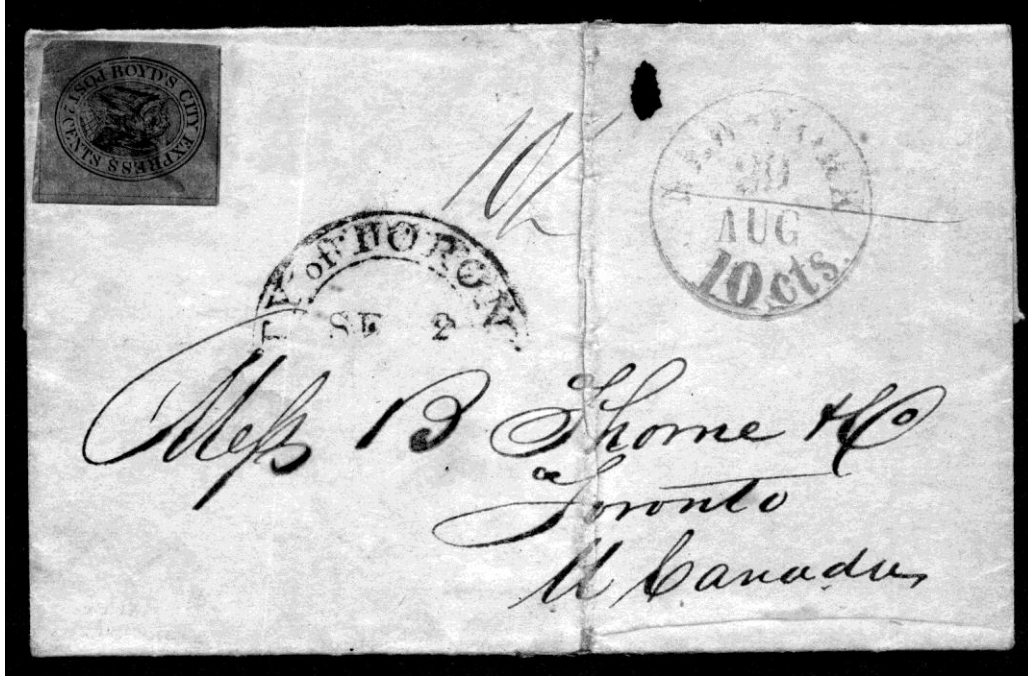 BOYD'S CITY EXPRESS POST
CENTS
NEW-YORK
AUG
10 cts.
TY of TORON
SE 2
Mess B Thorne & Co
Toronto
U Canada